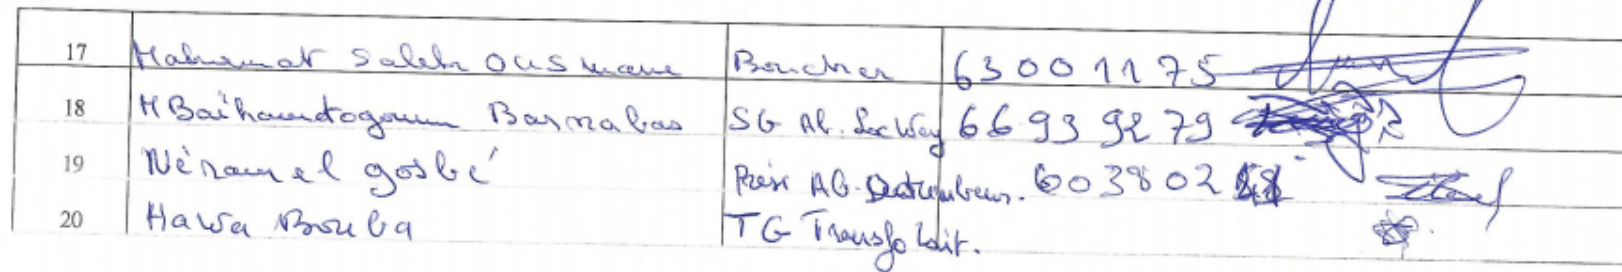 17 Mahamat Saleh Ousmane Boucher 63 00 11 75
18 MBaïhoundogoum Barnabas SG Ab. 66 93 92 79
19 Néramel gosbé Prési AG. 60 38 02
20 Hawa Bouba TG Transfo lait.